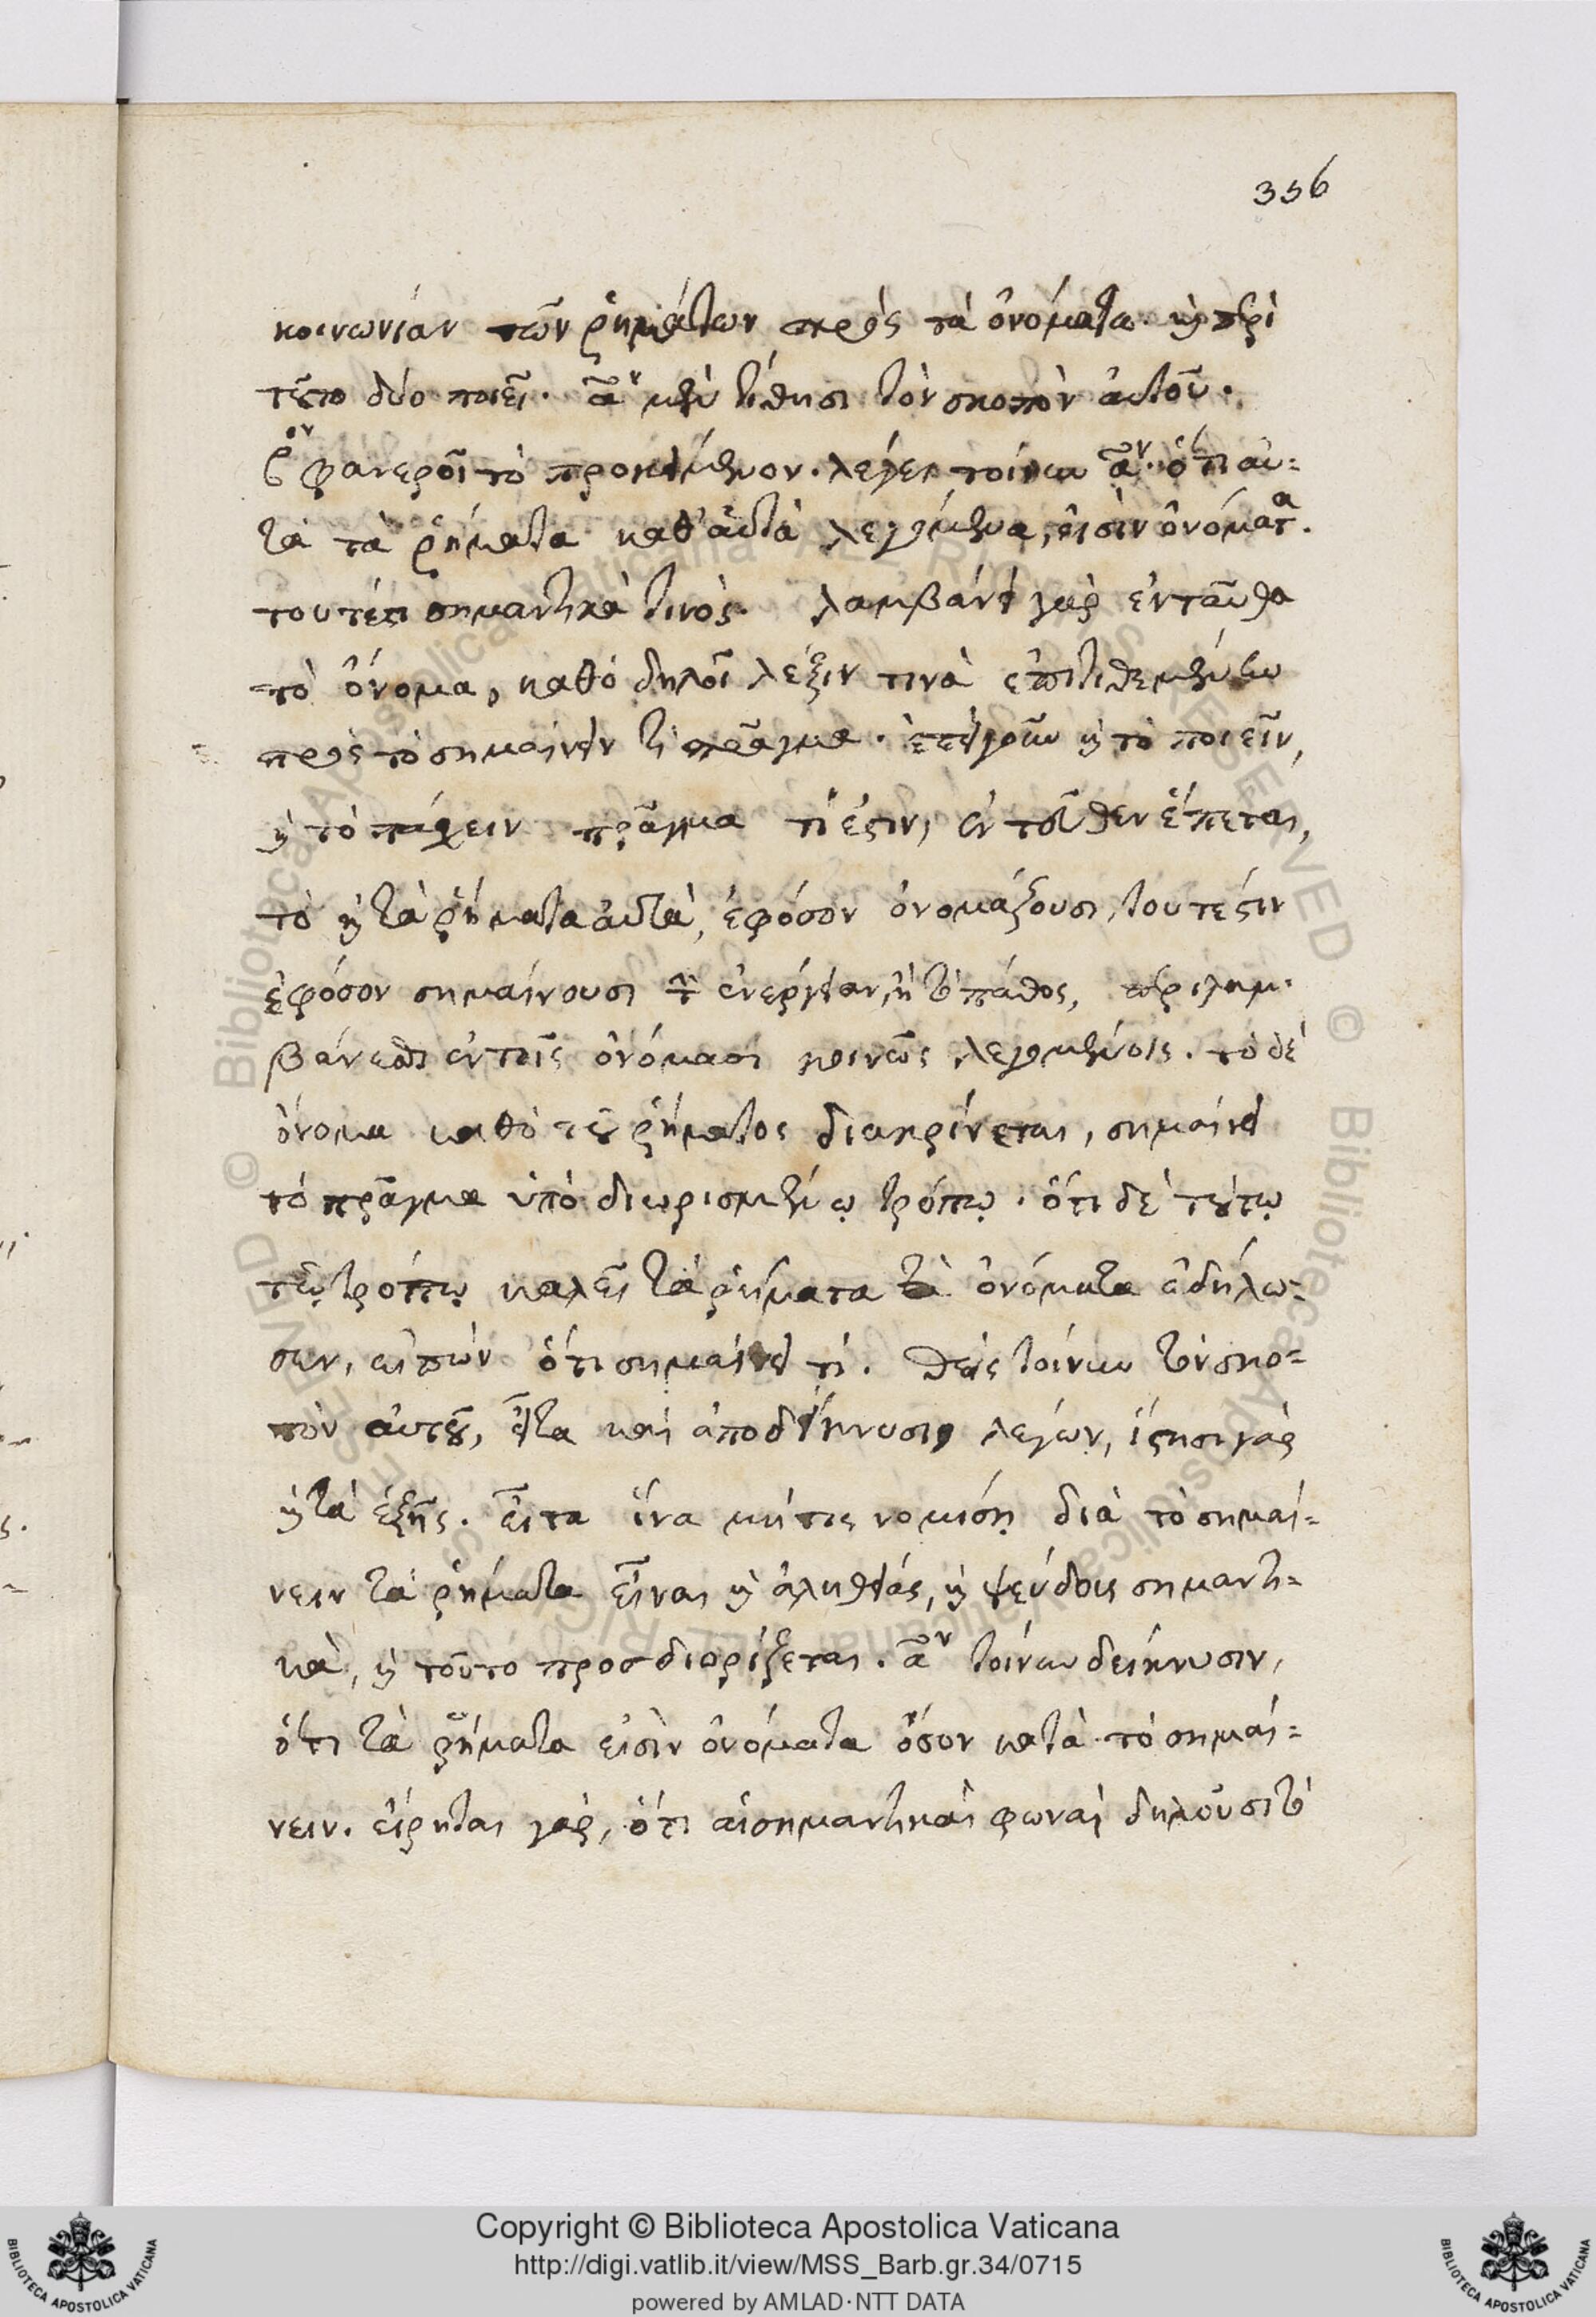 356
κοινωνίαν τῶν ῥημάτων πρὸς τὰ ὀνόματα. καὶ περὶ
τοῦτο δύο ποιεῖ. αον μὲν τίθησι τὸν σκοπὸν αὐτοῦ.
βον φανεροῖ τὸ προκείμενον. λέγει τοίνυν αον. ὅτι αὐ=
τὰ τὰ ῥήματα καθ' αὑτὰ λεγόμενα, εἰσὶν ὀνόματα.
τουτέστι σημαντικὰ τινός. λαμβάνει γὰρ ἐνταῦθα
τὸ ὄνομα, καθὸ δηλοῖ λέξιν τινὰ ἐπιτιθεμένην
πρὸς τὸ σημαίνειν τὶ πρᾶγμα. ἐπεὶ γοῦν καὶ τὸ ποιεῖν,
καὶ τὸ πάσχειν πρᾶγμα τί ἐστιν, ἐντεῦθεν ἕπεται,
τὸ καὶ τὰ ῥήματα αὐτὰ, ἐφόσον ὀνομάζουσι, τουτέστιν
ἐφόσον σημαίνουσι τὴν ἐνέργειαν, ἢ τὸ πάθος, περιλαμ-
βάνεσθαι ἐν τοῖς ὀνόμασι κοινῶς λεγομένοις. τὸ δὲ
ὄνομα καθὸ τοῦ ῥήματος διακρίνεται, σημαίνει
τὸ πρᾶγμα ὑπὸ διωρισμένῳ τρόπῳ. ὅτι δὲ τούτῳ
τῷ τρόπῳ καλεῖ τὰ ῥήματα τὰ ὀνόματα ἐδήλω=
σεν, εἰπὼν ὅτι σημαίνει τί. θεὶς τοίνυν τὸν σκο=
πὸν αὐτοῦ, εἶτα καὶ ἀποδείκνυσι, λέγων, ἵστησι γὰρ
καὶ τὰ ἑξῆς. εἶτα ἵνα μήτις νομίσῃ διὰ τὸ σημαί=
νειν τὰ ῥήματα εἶναι καὶ ἀληθείας, καὶ ψεύδους σημαντι=
κὰ, καὶ τοῦτο προσδιορίζεται. αον τοίνυν δείκνυσιν,
ὅτι τὰ ῥήματα εἰσὶν ὀνόματα ὅσον κατὰ τὸ σημαί=
νειν. εἴρηται γὰρ, ὅτι αἱ σημαντικαὶ φωναὶ δηλοῦσι τὸ
Copyright © Biblioteca Apostolica Vaticana
http://digi.vatlib.it/view/MSS_Barb.gr.34/0715
powered by AMLAD·NTT DATA